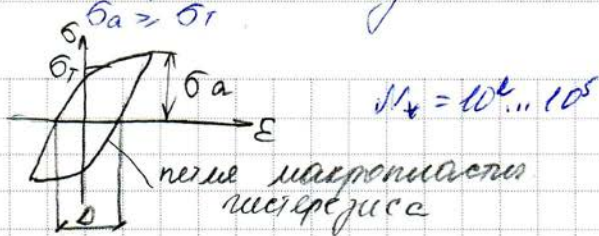 σa ≥ σт
σ
σт
σa
ε
N* = 10² ... 10⁵
петля макропластич
гистерезиса
Δ